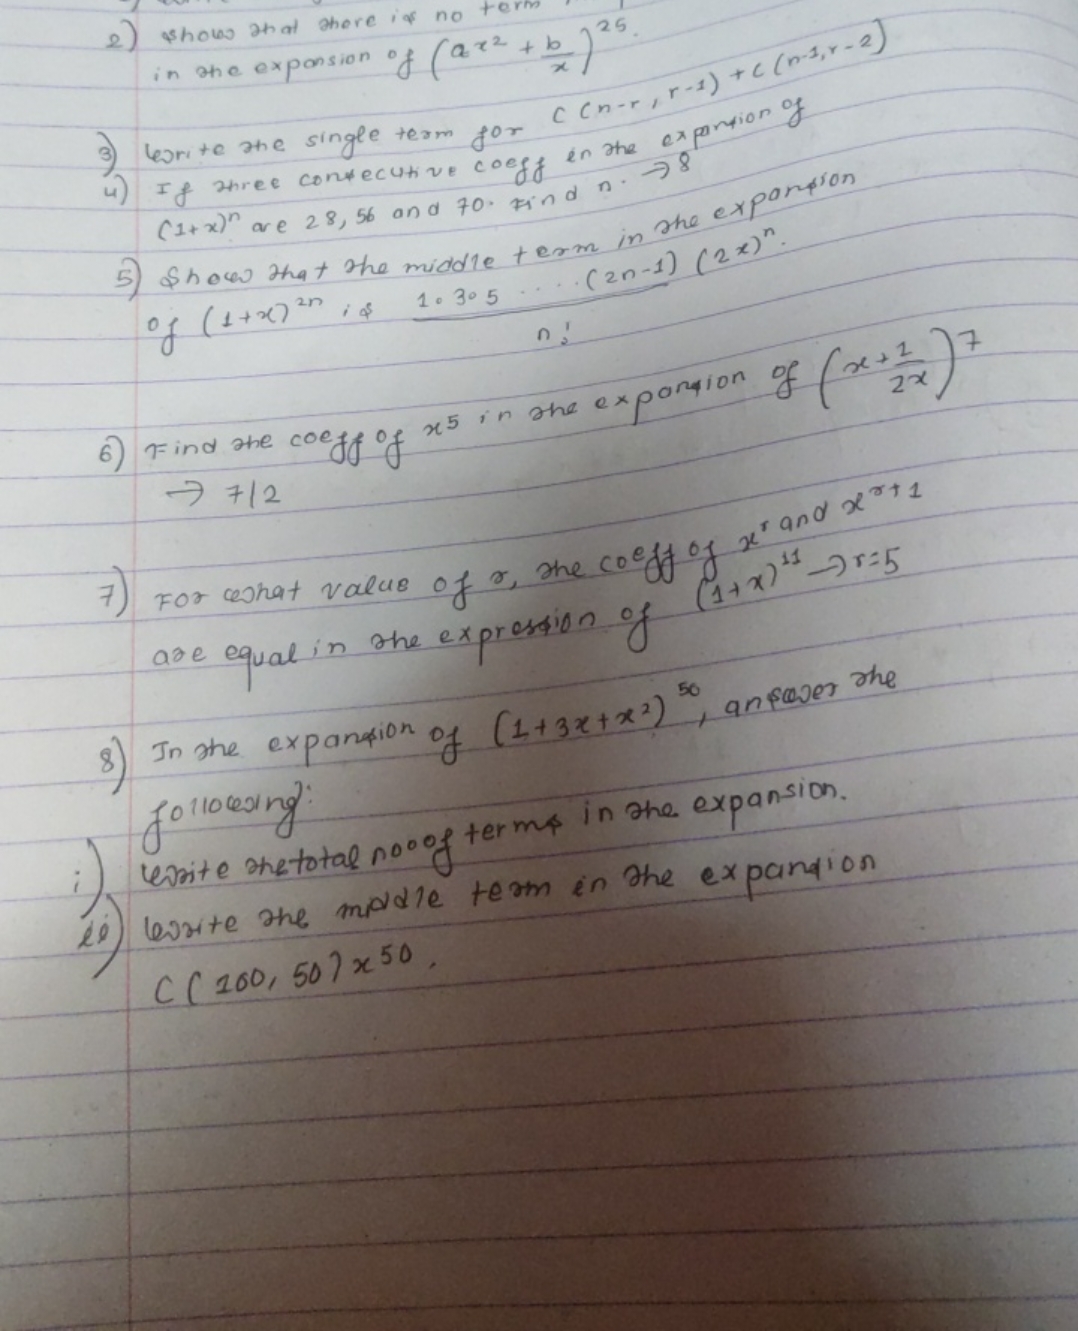 2) Show that there is no term
in the expansion of (ax² + b/x)²⁵.
3) Write the single term for C(n-r, r-1) + C(n-1, r-2)
4) If three consecutive coeff in the expansion of
(1+x)ⁿ are 28, 56 and 70. Find n. → 8
5) Show that the middle term in the expansion
of (1+x)²ⁿ is 1.3.5 .... (2n-1) (2x)ⁿ.
n!
6) Find the coeff of x⁵ in the expansion of (x + 1/2x)⁷
→ 7/2
7) For what value of r, the coeff of xʳ and xʳ⁺¹
are equal in the expression of (1+x)¹¹ → r=5
8) In the expansion of (1+3x+x²)⁵⁰, answer the
following:
i) Write the total no of terms in the expansion.
ii) Write the middle term in the expansion
C(100, 50) x⁵⁰.